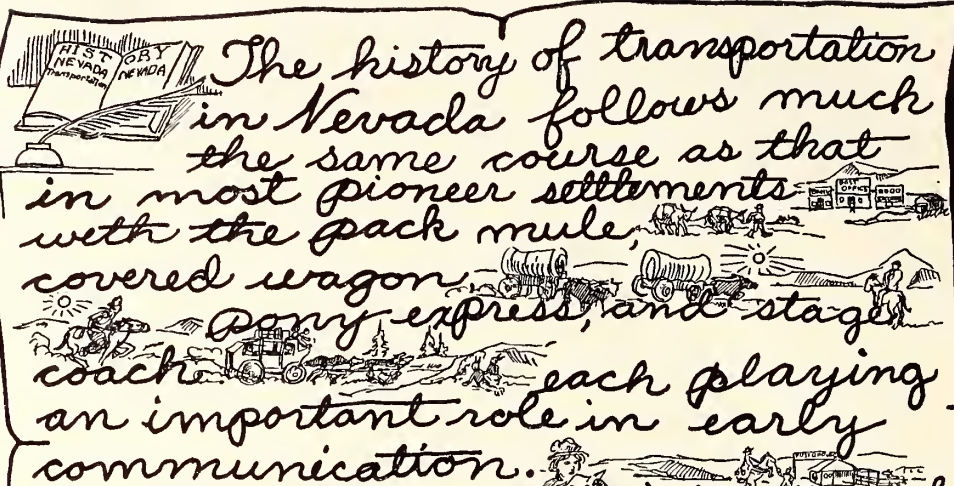 HIST ORY
NEVADA NEVADA
Transportation
The history of transportation
in Nevada follows much
the same course as that
in most pioneer settlements
POST
OFFICE
with the pack mule,
covered wagon,
pony express, and stage
coach each playing
an important role in early
communication.